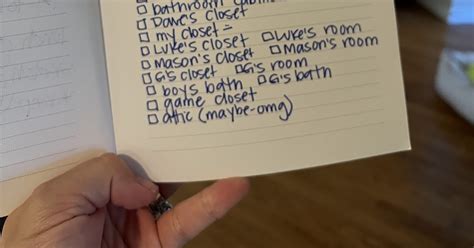 □ bathroom cabin
□ Dave's closet
□ my closet =
□ Luke's closet □ Luke's room
□ Mason's closet □ Mason's room
□ G's closet □ G's room
□ boys bath □ G's bath
□ game closet
□ attic (maybe-omg)